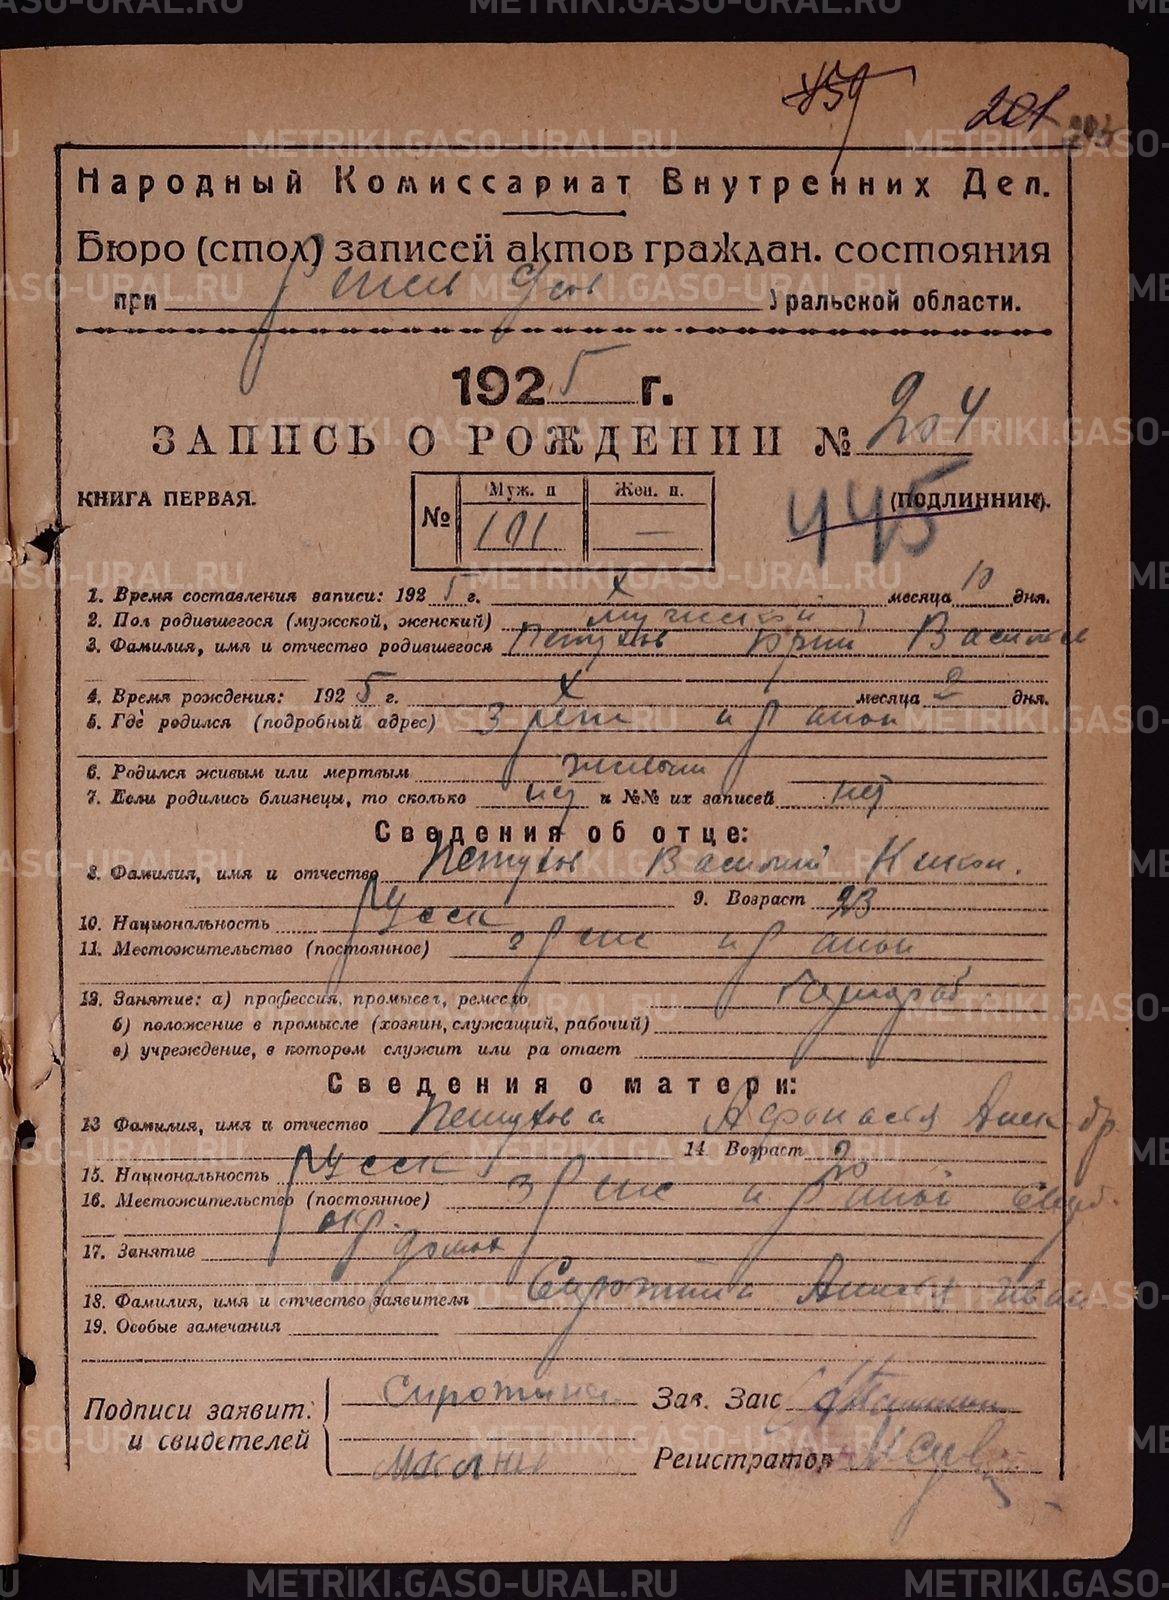 201
Народный Комиссариат Внутренних Дел.
Бюро (стол) записей актов граждан. состояния
при Уральской области.
1925 г.
ЗАПИСЬ О РОЖДЕНИИ № 204
КНИГА ПЕРВАЯ.
(ПОДЛИННИК).
№ Муж. п Жен. п.
101 —
445
1. Время составления записи: 1925 г. X месяца 10 дня.
2. Пол родившегося (мужской, женский) мужской
3. Фамилия, имя и отчество родившегося Петухов Юрий Василье
4. Время рождения: 1925 г. X месяца 2 дня.
5. Где родился (подробный адрес)
6. Родился живым или мертвым живым
7. Если родились близнецы, то сколько нет и №№ их записей нет
Сведения об отце:
8. Фамилия, имя и отчество Петухов Василий Никон.
9. Возраст 23
10. Национальность русск
11. Местожительство (постоянное)
12. Занятие: а) профессия, промысел, ремесло
б) положение в промысле (хозяин, служащий, рабочий)
в) учреждение, в котором служит или ра отает
Сведения о матери:
13 Фамилия, имя и отчество Петухова
14 Возраст 20
15. Национальность русск
16. Местожительство (постоянное)
окр.
17. Занятие домох
18. Фамилия, имя и отчество заявителя
19. Особые замечания
Подписи заявит. и свидетелей
Зав. Загс
Регистратор
METRIKI.GASO-URAL.RU